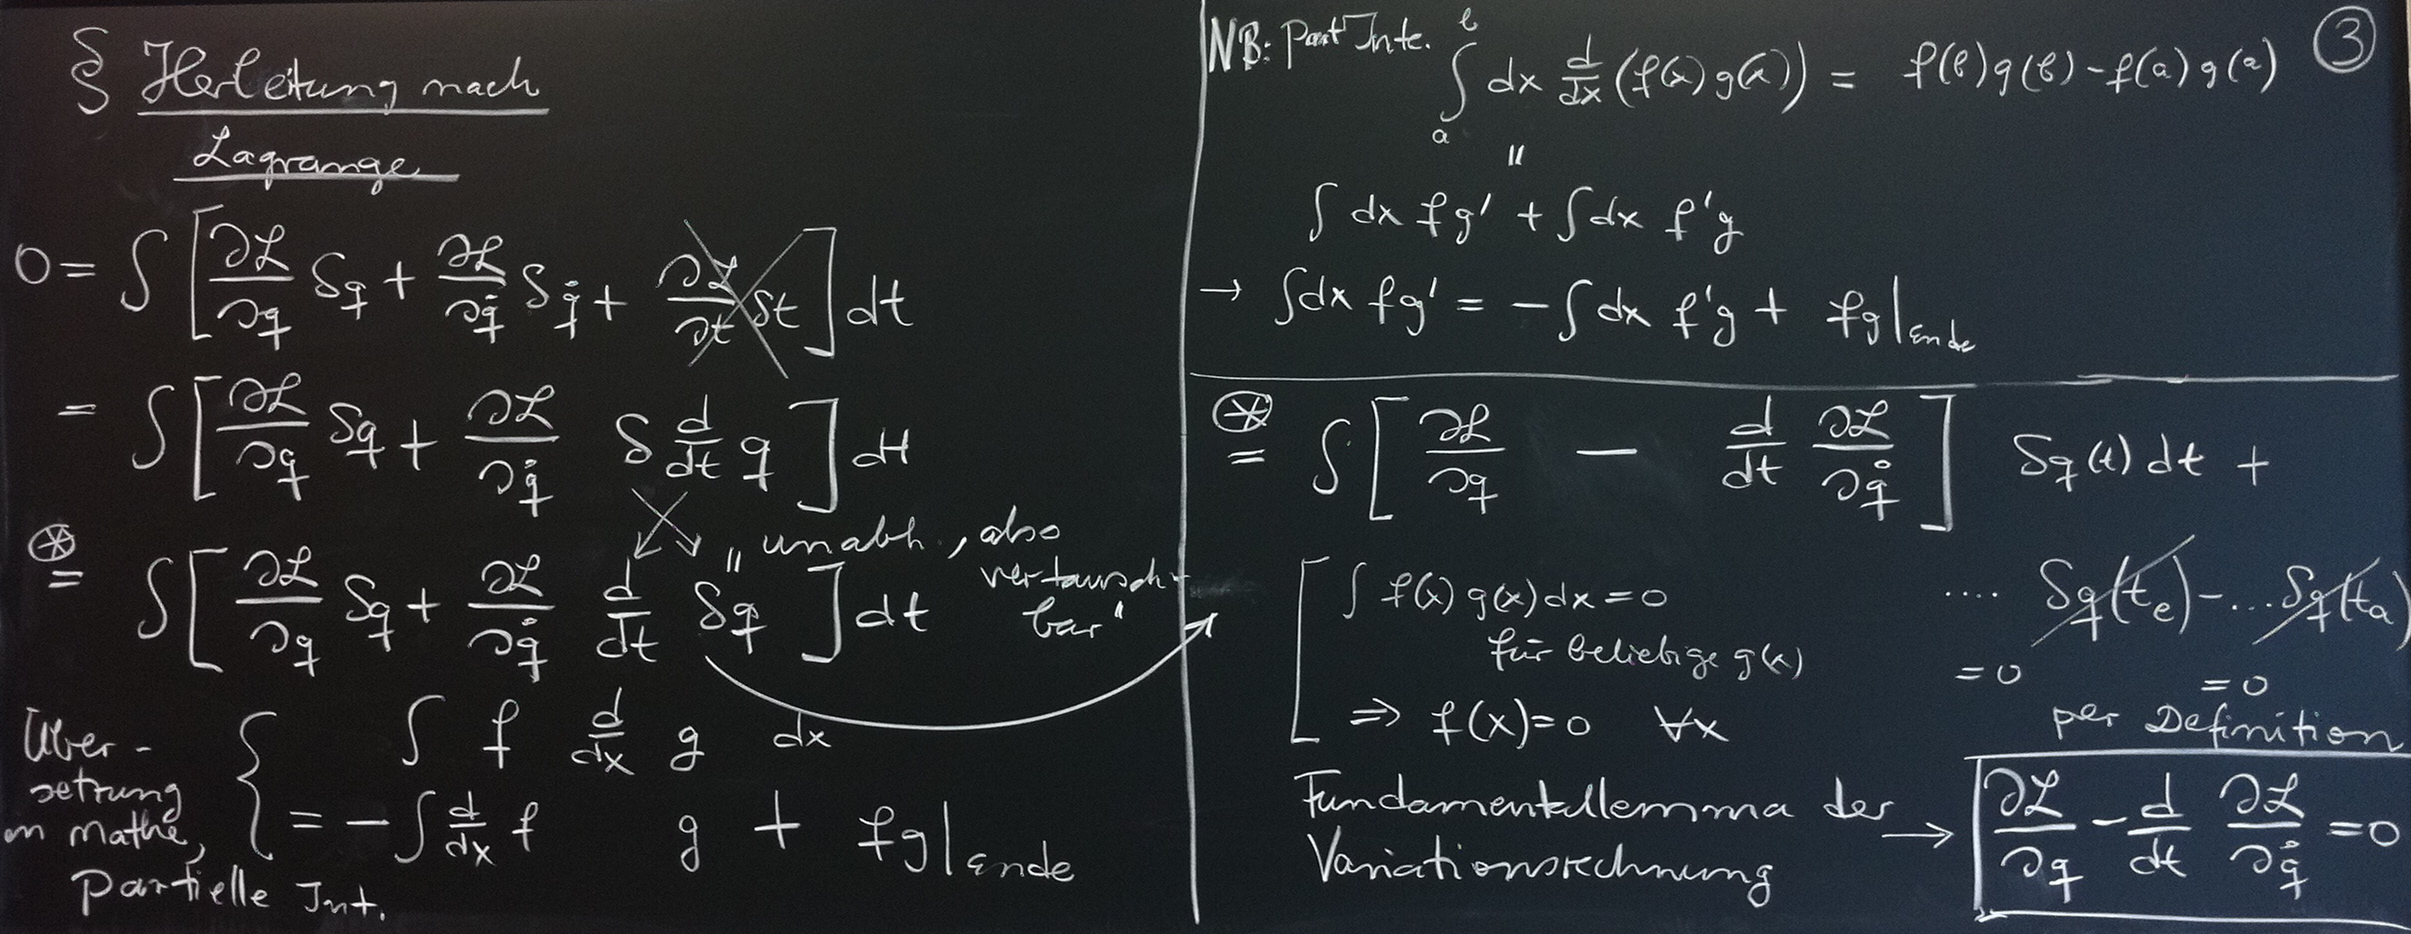 § Herleitung nach
Lagrange
0 = ∫ [ ∂ℒ/∂q δq + ∂ℒ/∂q̇ δq̇ + ∂ℒ/∂t δt ] dt
= ∫ [ ∂ℒ/∂q δq + ∂ℒ/∂q̇ δ d/dt q ] dt
„unabh., also
vertausch-
bar"
⊛ = ∫ [ ∂ℒ/∂q δq + ∂ℒ/∂q̇ d/dt δq ] dt
Über-
setzung
in Mathe,
partielle Int.
∫ f d/dx g dx
= - ∫ d/dx f g + fg|Ende
NB: Part Inte. ∫ₐᵇ dx d/dx (f(x) g(x)) = f(b) g(b) - f(a) g(a)
③
"
∫ dx f g' + ∫ dx f'g
→ ∫ dx f g' = - ∫ dx f'g + fg|Ende
⊛ = ∫ [ ∂ℒ/∂q - d/dt ∂ℒ/∂q̇ ] δq(t) dt +
.... δq(tₑ) - ... δq(tₐ)
= 0 = 0
per Definition
∫ f(x) g(x) dx = 0
für beliebige g(x)
⇒ f(x) = 0 ∀x
Fundamentallemma der
Variationsrechnung
→ ∂ℒ/∂q - d/dt ∂ℒ/∂q̇ = 0